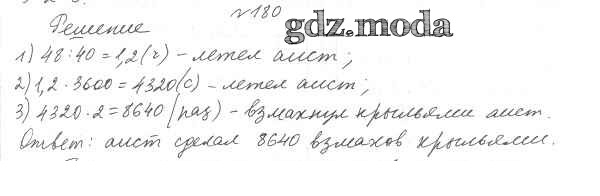 №180
Решение
gdz.moda
1) 48 : 40 = 1,2 (ч) – летел аист;
2) 1,2 · 3600 = 4320 (с) – летел аист;
3) 4320 · 2 = 8640 (раз) – взмахнул крыльями аист.
Ответ: аист сделал 8640 взмахов крыльями.